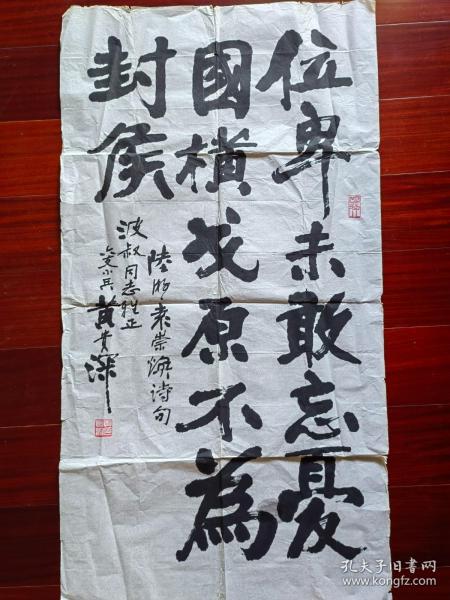 位卑未敢忘憂
國橫戈原不為
封侯
陸游袁崇煥诗句
波叔同志雅正
黄贵深
孔夫子旧书网
www.kongfz.com